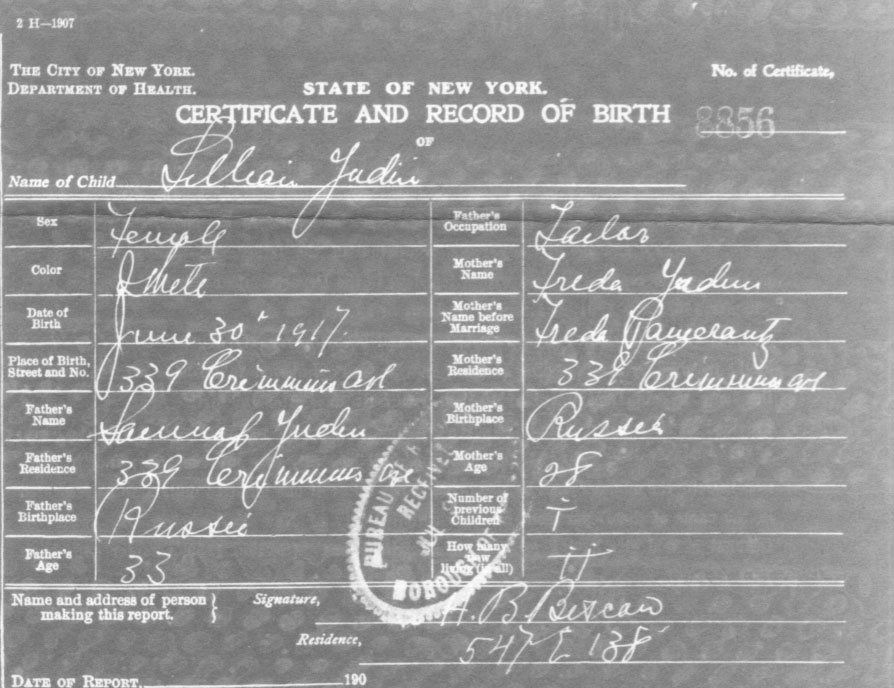 2 H—1907
THE CITY OF NEW YORK.
DEPARTMENT OF HEALTH.
STATE OF NEW YORK.
No. of Certificate,
CERTIFICATE AND RECORD OF BIRTH
8856
OF
Name of Child Lillian Yudin
Sex Female
Father's Occupation Tailor
Color White
Mother's Name Freda Yudin
Date of Birth June 30' 1917.
Mother's Name before Marriage Freda Pamerantz
Place of Birth, Street and No. 339 Crimmins ave
Mother's Residence 339 Crimmins ave
Father's Name Samuel Yuden
Mother's Birthplace Russia
Father's Residence 339 Crimmins ave
Mother's Age 28
Father's Birthplace Russia
Number of previous Children I
Father's Age 33
How many now living (in all) II
BUREAU OF
RECEIVED
BOROUGH OF
Name and address of person making this report.
Signature, A. B.
Residence, 547 E 138
DATE OF REPORT. 190